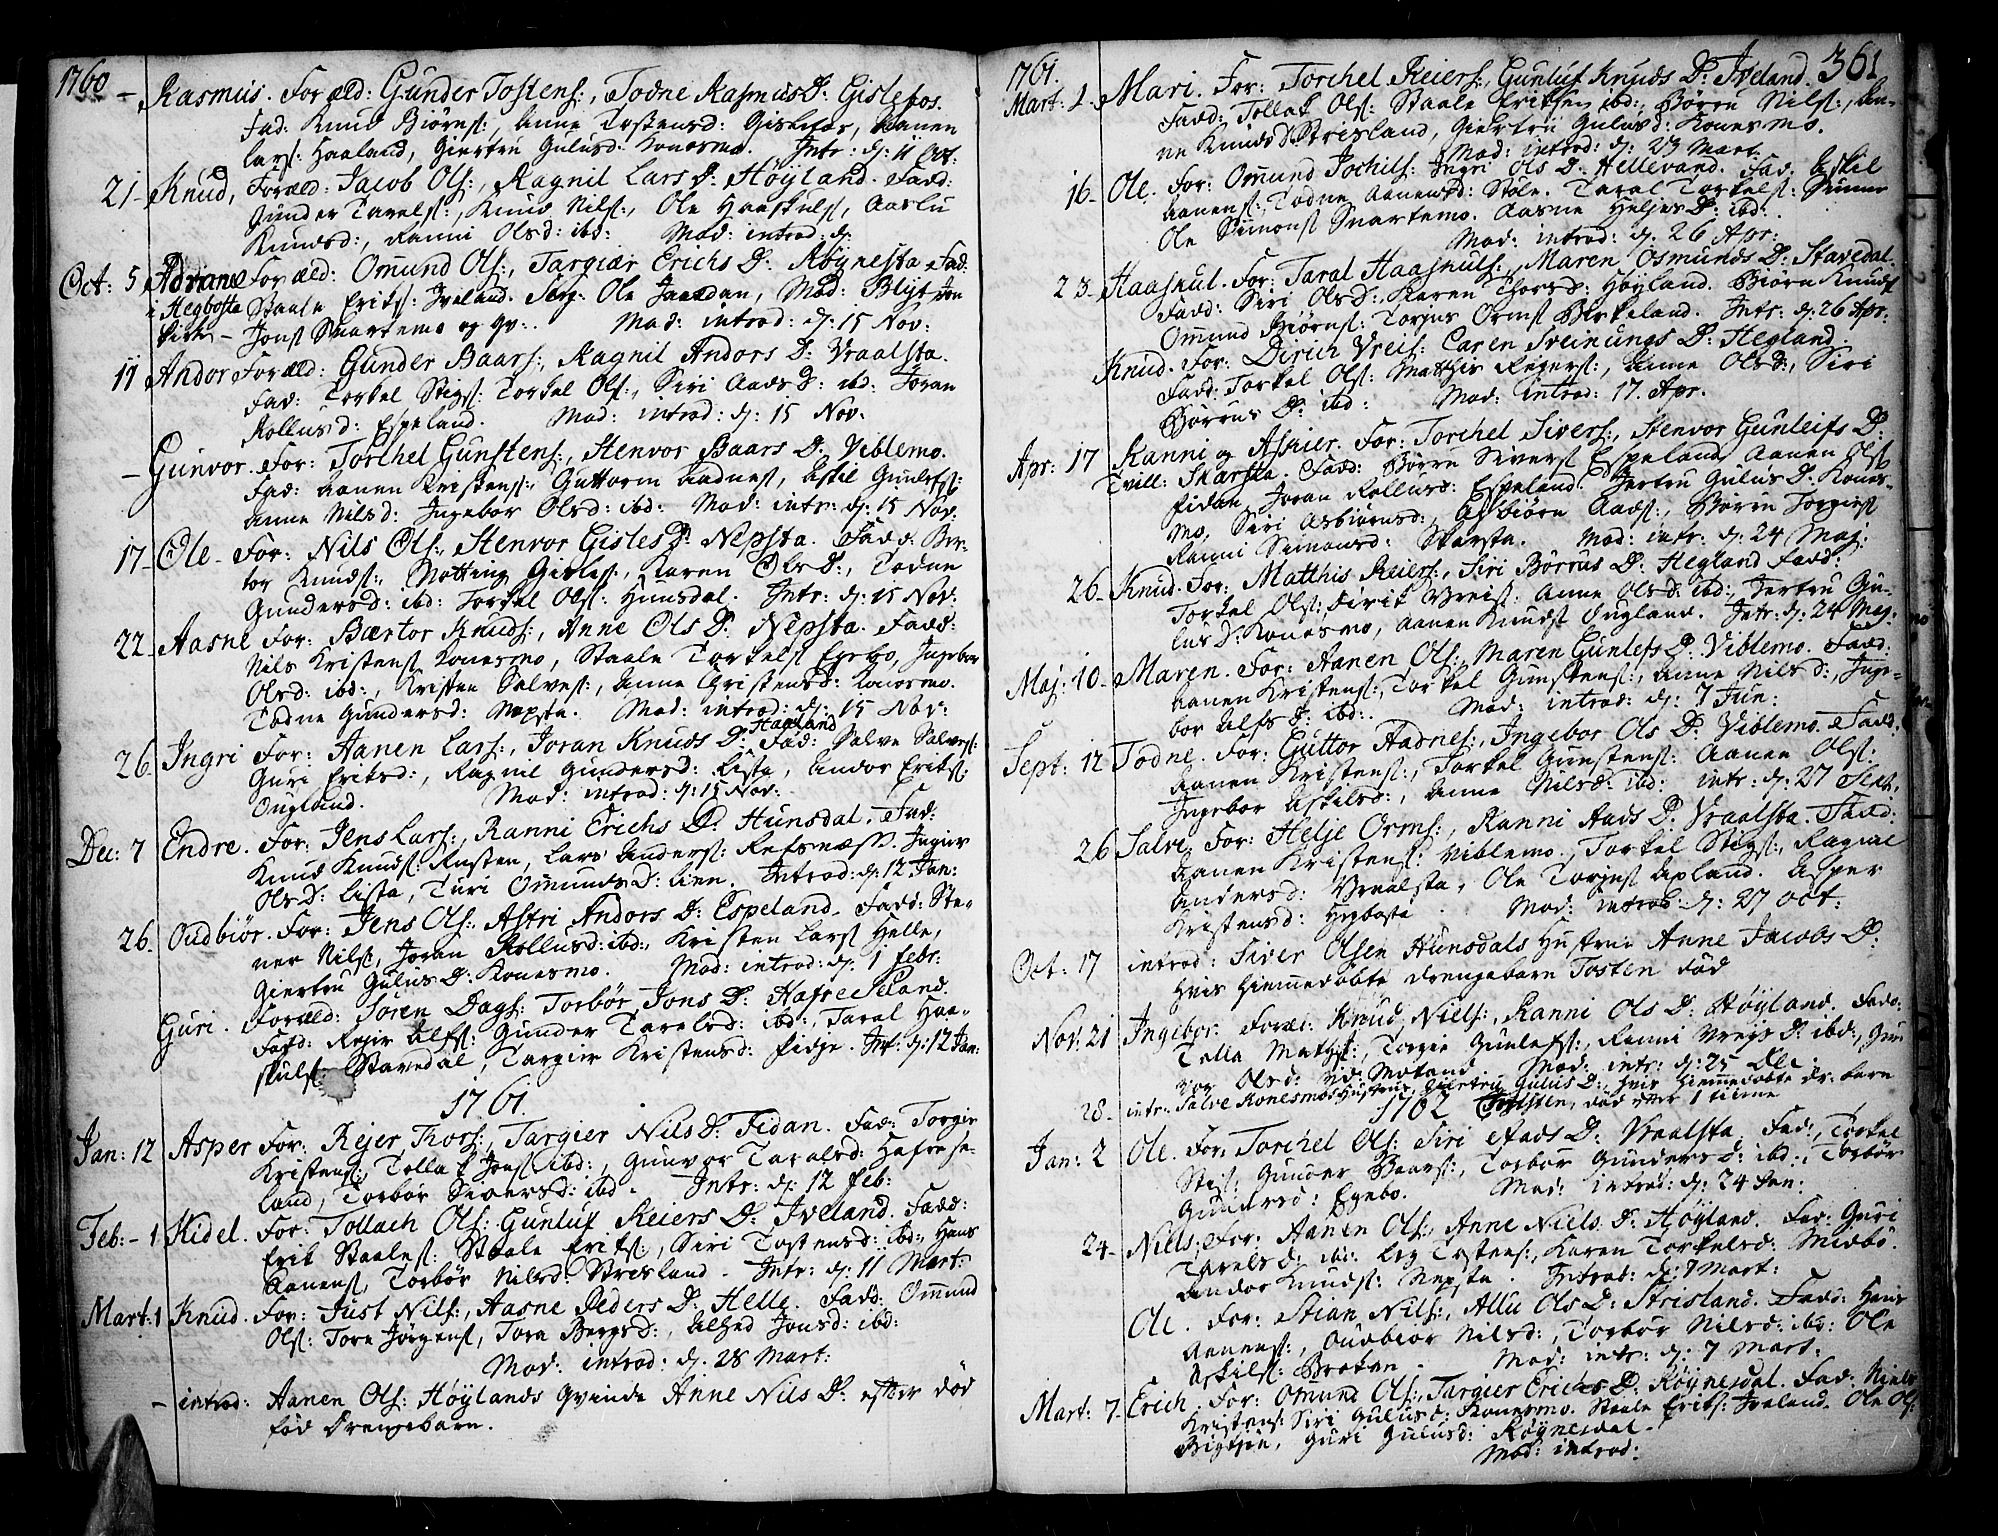 1760
– Rasmus. Foræld: Gunder Tostens:, Todne Rasmus D: Gislefos.
Fad: Knud Biørns:, Anne Tostensd: Gislefos, Aanen
Lars: Haaland, Giertru Gulusd: Konesmo. Intr: d: 11 Oct:
21 – Knud, Foræld: Jacob Ols:, Ragnil Lars D: Høyland. Fadd:
Gunder Tarels:, Knud Nils:, Ole Haaskuls, Aaslu
Knudsd:, Ranni Olsd: ibd: Mod: introd: d:
Oct: 5 Adrane Foræld: Omund Ols:, Targiær Erichs D: Røynesta Fad:
i Hegbosta Staale Eriks: Iveland. Serg: Ole Jordan, Mad: Blixt Jon
kirke – Jons Snartemo og Gv:. Mod: introd: d: 15 Nov:
11 Andor Foræld: Gunder Baars:, Ragnil Andors D: Vraalsta.
Fad: Torkel Stigs: Torkel Ols:, Siri Aads D: ibd: Joran
Rollusd: Espeland. Mod: introd: d: 15 Nov:
– Gunvor. For: Torchel Gunstens:, Stenvor Baars D: Viblemo.
Fad: Aanen Kristens:, Guttorm Aadnes, Eskil Gunlefs:
Anne Nilsd: Ingebor Olsd: ibd: Mod: intr: d: 15 Nov:
17 – Ole – For: Nils Ols:, Stenvor Gisles D: Nepsta. Fadd: Ber-
tor Knuds:, Motting Gisles:, Karen Ols D:, Todne
Gundersd: ibd: Torkel Ols: Hunsdal. Intr: d: 15 Nov:
22 – Aasne For: Bærtor Knuds:, Anne Ols D: Nepsta. Fadd:
Nils Kristens Konesmo, Staale Torkels Egebo, Ingebor
Olsd: ibd:, Kristen Salves:, Anne Christensd: Konesmo.
Todne Gundersd: Nepsta. Mod: introd: d: 15 Nov:
26 – Ingri For: Aanen Lars:, Joran Knuds D: Haaland Fad: Salve Salves:
Guri Eriksd:, Ragnil Gundersd: Lista, Andor Eriks:
Ougland. Mod: introd: d: 15 Nov:
Dec: 7 Endre. For: Jens Lars:, Ranni Erichs D: Hunsdal. Fad:
Knud Knuds: Rusten, Lars Anders: Refsnæss. Ingier
Ols D: Lista, Turi Omunds D: Lien. Introd: d: 12 Jan:
26 – Oudbiør. For: Jens Ols:, Astri Andors D: Espeland. Fadd: Ste-
ner Nils, Joran Rollusd: ibd:, Kristen Lars Helle,
Giertru Gulus D: Konesmo. Mod: introd: d: 1 Febr:
Guri. Foræld: Søren Dags: Torbør Jons D: Hafreseland.
Fadd: Rejer Alfs: Gunder Tarelsd: ibd:, Taral Haa-
skuls: Stavedal, Targier Kristensd: Fidje. Int: d: 12 Jan:
1761.
Jan: 12 Asper For: Rejer Thors:, Targier Nils D: Fidan. Fad: Torgir
Kristens: Tollak Jons ibd:, Gunvor Taralsd: Hafrese-
land, Torbør Sivers d: ibd. Intr: d: 12 Feb:
Feb: – 1 Kidel. For: Tollach Ols: Gunluf Reiers D: Iveland. Fadd:
Erik Staales: Staale Eriks:, Siri Tostensd: ibd:, Hans
Aanens, Torbør Nilsd: Strisland. Intr: d: 11 Mart:
Mart: 1 Knud. For: Just Nils:, Aasne Peders D: Helle. Fadd: Omund
Ols: Tore Jørgens, Tora Bergsd:, Alhed Jonsd: ibd:
Mod: introd: d: 28 Mart:
– introd: Aanen Ols: Høylands Qvinde Anne Nils D: efter død
fød Drengebarn.
1761. 361
Mart: 1 – Mari. For: Torchel Reiers:, Gunluf Knuds D: Iveland.
Fadd: Tollak Ols: Staale Eriksen ibd:, Børru Nils:, An-
ne Knuds D: Strisland, Giertru Gulusd: Konesmo.
Mod: introd: d: 23 Mart.
16 – Ole. For: Omund Jochils: Ingri Ols D: Hellevand. Fad: Eskil
Aanens:, Todne Aanensd: Støle. Taral Torkels: Sunne
Ole Simons Snartemo. Aasne Heljes D: ibd:
Mod: introd: d. 26 Apr:
23 – Haaskul. For: Taral Haaskuls:, Maren Osmunds D: Stavedal.
Fadd: Siri Ols D: Karen Thorsd: Høyland. Biørn Knuds
Omund Biørns: Torgus Orms Birkeland. Intr: d: 26 Apr:
Knud. For: Dirich Vreis: Caren Sveinungs D: Hegland.
Fadd: Torkel Ols: Matthis Rejers:, Anne Ols D:, Siri
Børrus D: ibd: Mod: introd: 17. Apr.
Apr: 17 Ranni og Askier. For: Torchel Sivers:, Stenvor Gunleifs D:
Tvill: Skarsta. Fadd: Børru Sivers Espeland, Aanen Ols
Fidan, Joran Rollus: Espeland. Jertru Gulus D: Kones-
mo, Siri Asbiørnsd:, Asbiørn Aads:, Børru Torgiers
Ranni Simonsd: Skarsta. Mod: intr: d: 24 Maj:
26 – Knud. For: Matthis Reiers:, Siri Børrus D: Hegland Fadd:
Torkel Ols: Dirik Vreis: Anne Olsd: ibd: Jertru Gu-
lus D: Konesmo, Aanen Knuds Ougland. Intr: d: 24 Maj:
Maj: 10 – Maren. For: Aanen Ols:, Maren Gunlefs D: Viblemo. Fadd:
Aanen Kristens:, Torkel Gunstens:, Anne Nils d:, Inge-
bor Alfs D: ibd:. Mod: introd: d: 7 Jun:
Sept: 12 Todne. For: Guttor Aadnes:, Ingebor Ols D: Viblemo. Fadd:
Aanen Kristens:, Torkel Gunstens: Aanen Ols:
Ingebor Eskilsd:, Anne Nilsd: ibd: intr: d: 27 Sept.
26 Salve. For: Helje Orms:, Ranni Aads D: Vraalsta. Fadd:
Aanen Kristens: Viblemo. Torkel Stigs:, Ragnil
Andersd: Vraalsta, Ole Torjus Apland. Asper
Kristensd: Hegbosta. Mod: introd: d: 27 Oct:
Oct: 17 introd: Siver Olsen Hunsdals Hustru Anne Jacobs D:
hvis hiemmedøbte Drengebarn Tosten død
Nov: 21 Ingebor. Foræl: Knud Niels:, Ranni Ols D: Høyland. Fadd:
Tolla Mathis:, Torgie Gunlefs:, Ranni Vreis D: ibd:, Gun-
vor Olsd: Moland. Mod: intr: d: 25 Dec:
28 – intr: Salve Konesmos Hustrue Giertru Gulus D:, hvis hiemmedøbte Dr: barn
1762 Tosten, død efter 1 time
Jan: 2 Ole. For: Torchel Ols: Siri Aads D: Vraalsta. Fad:, Torkel
Stig: Gunder Baars:, Torbør Gundersd: ibd:, Torbør
Gundersd: Egebo. Mod: introd: d: 24 Jan:
24 – Niels. For: Aanen Ols:, Anne Niels D: Høyland. Fad: Guri
Tarelsd: ibd: Leg Tostens:, Karen Torkelsd: Midbø.
Andor Knuds: Nepsta. Introd: d: 7 Mart:
Ole. For: Stian Nils:, Allu Ols D: Strisland. Fadd: Hans
Aanens, Oudbior Nilsd:, Torbør Nilsd: ibd: Ole
Eskils: Broten. Mod: intr: d: 7 Mart:
Mart: 7 – Erich. For: Omund Ols:, Targier Erichs D: Røynesdal. Fad: Niels
Kristens: Siri Gulusd: Konesmo. Staale Eriks: Iveland. Ole Ols:
Guri Gulusd: Røynesdal.
Mod: introd: